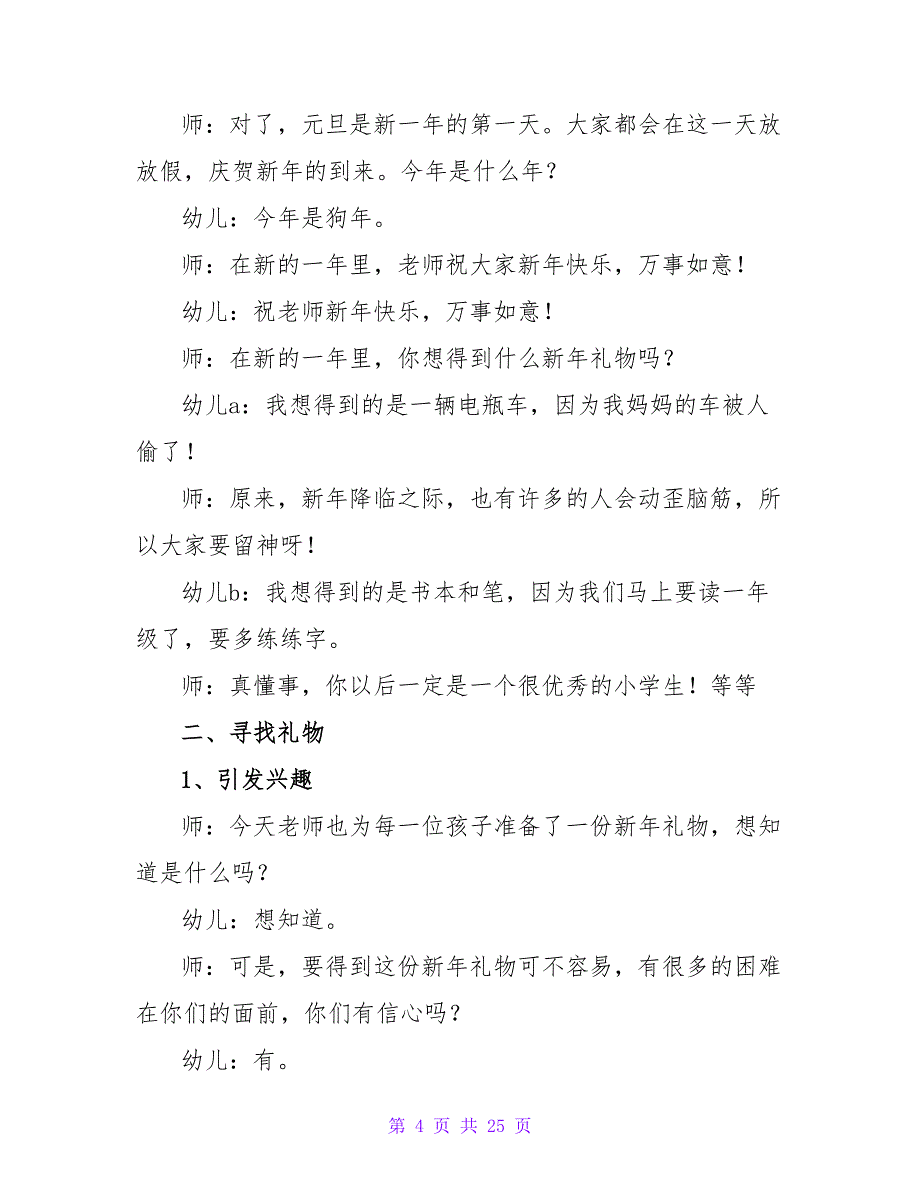 师：对了，元旦是新一年的第一天。大家都会在这一天放
放假，庆贺新年的到来。今年是什么年？
幼儿：今年是狗年。
师：在新的一年里，老师祝大家新年快乐，万事如意！
幼儿：祝老师新年快乐，万事如意！
师：在新的一年里，你想得到什么新年礼物吗？
幼儿a：我想得到的是一辆电瓶车，因为我妈妈的车被人
偷了！
师：原来，新年降临之际，也有许多的人会动歪脑筋，所
以大家要留神呀！
幼儿b：我想得到的是书本和笔，因为我们马上要读一年
级了，要多练练字。
师：真懂事，你以后一定是一个很优秀的小学生！等等
二、寻找礼物
1、引发兴趣
师：今天老师也为每一位孩子准备了一份新年礼物，想知
道是什么吗？
幼儿：想知道。
师：可是，要得到这份新年礼物可不容易，有很多的困难
在你们的面前，你们有信心吗？
幼儿：有。
第 4 页 共 25 页